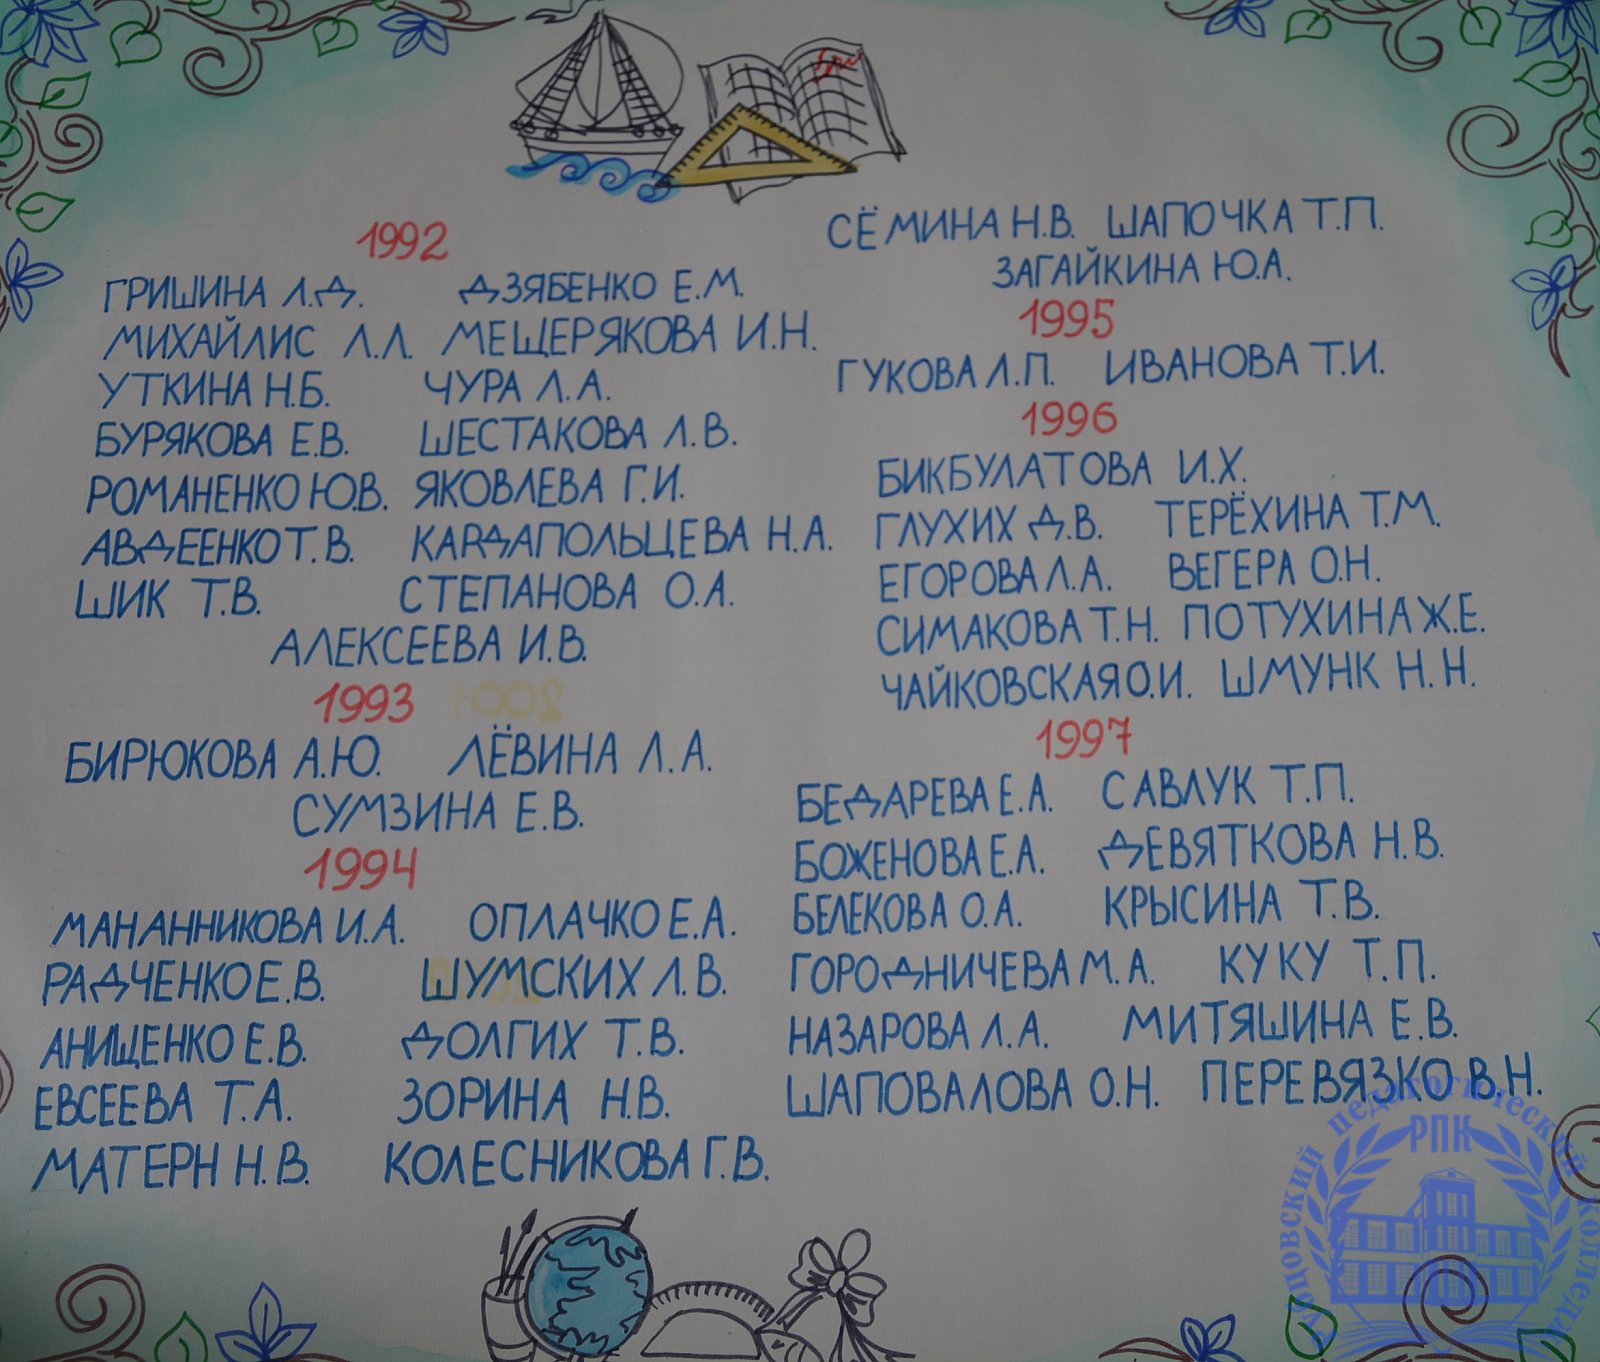 1992
ГРИШИНА Л.Д. ДЗЯБЕНКО Е.М.
МИХАЙЛИС Л.Л. МЕЩЕРЯКОВА И.Н.
УТКИНА Н.Б. ЧУРА Л.А.
БУРЯКОВА Е.В. ШЕСТАКОВА Л.В.
РОМАНЕНКО Ю.В. ЯКОВЛЕВА Г.И.
АВДЕЕНКО Т.В. КАРДАПОЛЬЦЕВА Н.А.
ШИК Т.В. СТЕПАНОВА О.А.
АЛЕКСЕЕВА И.В.
1993
БИРЮКОВА А.Ю. ЛЁВИНА Л.А.
СУМЗИНА Е.В.
1994
МАНАННИКОВА И.А. ОПЛАЧКО Е.А.
РАДЧЕНКО Е.В. ШУМСКИХ Л.В.
АНИЩЕНКО Е.В. ДОЛГИХ Т.В.
ЕВСЕЕВА Т.А. ЗОРИНА Н.В.
МАТЕРН Н.В. КОЛЕСНИКОВА Г.В.
СЁМИНА Н.В. ШАПОЧКА Т.П.
ЗАГАЙКИНА Ю.А.
1995
ГУКОВА Л.П. ИВАНОВА Т.И.
1996
БИКБУЛАТОВА И.Х.
ГЛУХИХ Д.В. ТЕРЁХИНА Т.М.
ЕГОРОВА Л.А. ВЕГЕРА О.Н.
СИМАКОВА Т.Н. ПОТУХИНА Ж.Е.
ЧАЙКОВСКАЯ О.И. ШМУНК Н.Н.
1997
БЕДАРЕВА Е.А. САВЛУК Т.П.
БОЖЕНОВА Е.А. ДЕВЯТКОВА Н.В.
БЕЛЕКОВА О.А. КРЫСИНА Т.В.
ГОРОДНИЧЕВА М.А. КУКУ Т.П.
НАЗАРОВА Л.А. МИТЯШИНА Е.В.
ШАПОВАЛОВА О.Н. ПЕРЕВЯЗКО В.Н.
Рубцовский педагогический колледж
РПК